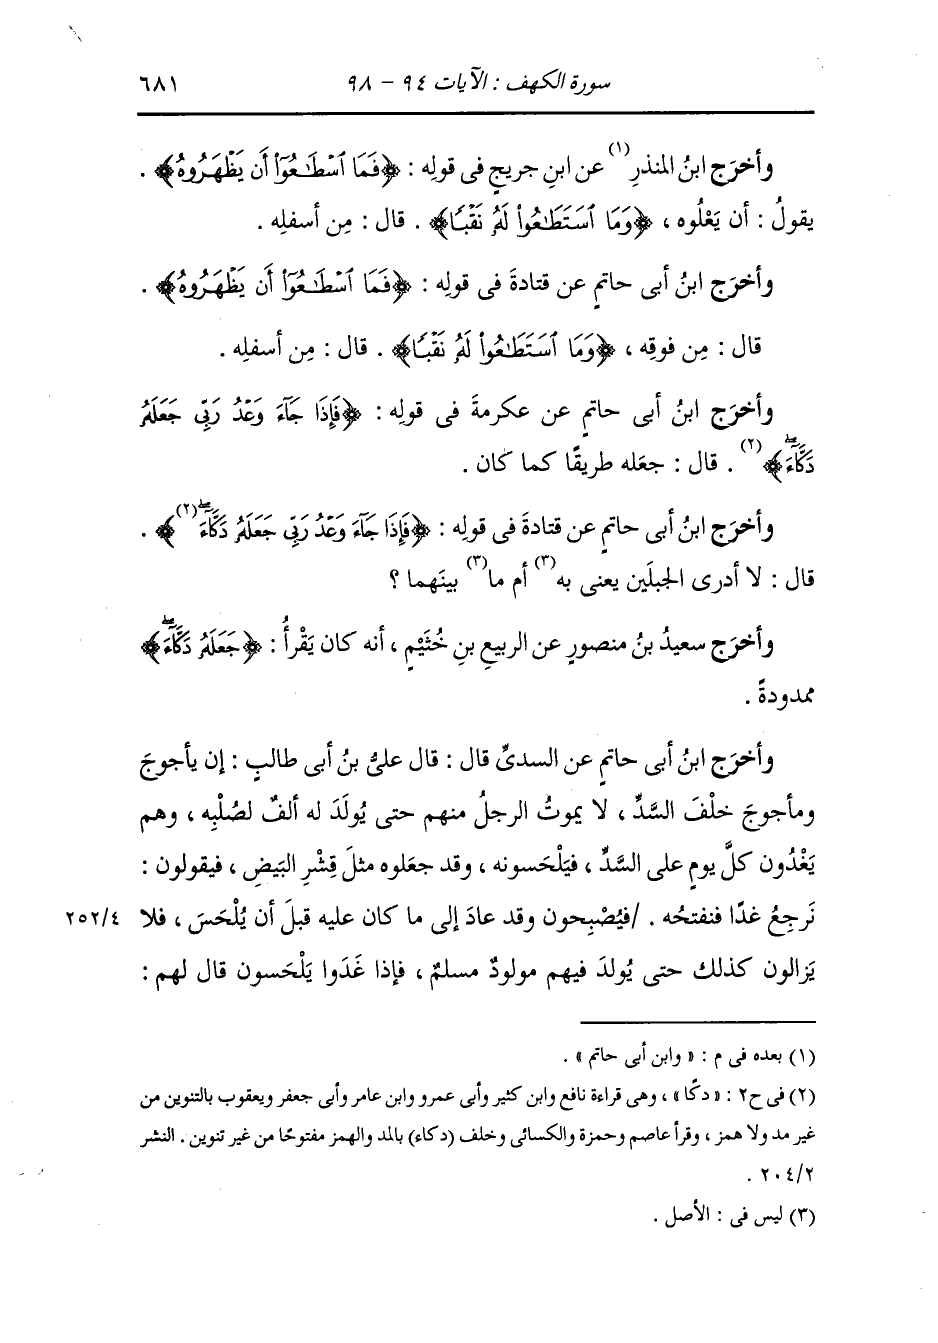 سورة الكهف : الآيات ٩٤ - ٩٨ ٦٨١
وأخرَج ابنُ المنذرِ(١) عن ابنِ جريجٍ فى قولِه : ﴿فَمَا ٱسْطَـٰعُوٓا۟ أَن يَظْهَرُوهُ﴾ .
يقولُ : أن يَعْلُوه ، ﴿وَمَا ٱسْتَطَـٰعُوا۟ لَهُۥ نَقْبًا﴾ . قال : مِن أسفلِه .
وأخرَج ابنُ أبى حاتمٍ عن قتادةَ فى قولِه : ﴿فَمَا ٱسْطَـٰعُوٓا۟ أَن يَظْهَرُوهُ﴾ .
قال : مِن فوقِه ، ﴿وَمَا ٱسْتَطَـٰعُوا۟ لَهُۥ نَقْبًا﴾ . قال : مِن أسفلِه .
وأخرَج ابنُ أبى حاتمٍ عن عكرمةَ فى قولِه : ﴿فَإِذَا جَآءَ وَعْدُ رَبِّى جَعَلَهُۥ
دَكَّآءَۖ﴾(٢) . قال : جعَله طريقًا كما كان .
وأخرَج ابنُ أبى حاتمٍ عن قتادةَ فى قولِه : ﴿فَإِذَا جَآءَ وَعْدُ رَبِّى جَعَلَهُۥ دَكَّآءَۖ(٢)﴾ .
قال : لا أدرى الجبلَين يعنى به(٣) أم ما(٣) بينَهما ؟
وأخرَج سعيدُ بنُ منصورٍ عن الربيعِ بنِ خُثَيْمٍ ، أنه كان يَقْرأُ : ﴿جَعَلَهُۥ دَكَّآءَۖ﴾
ممدودةً .
وأخرَج ابنُ أبى حاتمٍ عن السدىِّ قال : قال علىُّ بنُ أبى طالبٍ : إن يأجوجَ
ومأجوجَ خلْفَ السَّدِّ ، لا يموتُ الرجلُ منهم حتى يُولَدَ له ألفٌ لصُلْبِه ، وهم
يَغْدُون كلَّ يومٍ على السَّدِّ ، فيَلْحَسونه ، وقد جعَلوه مثلَ قِشْرِ البَيضِ ، فيقولون :
نَرجِعُ غدًا فنفتحُه . /فيُصْبِحون وقد عادَ إلى ما كان عليه قبلَ أن يُلْحَسَ ، فلا ٢٥٢/٤
يَزالون كذلك حتى يُولدَ فيهم مولودٌ مسلمٌ ، فإذا غَدَوا يَلْحَسون قال لهم :
(١) بعده فى م : « وابن أبى حاتم » .
(٢) فى ح٢ : « دكًا » ، وهى قراءة نافع وابن كثير وأبى عمرو وابن عامر وأبى جعفر ويعقوب بالتنوين من
غير مد ولا همز ، وقرأ عاصم وحمزة والكسائى وخلف (دكاء) بالمد والهمز مفتوحًا من غير تنوين . النشر
٢٠٤/٢ .
(٣) ليس فى : الأصل .